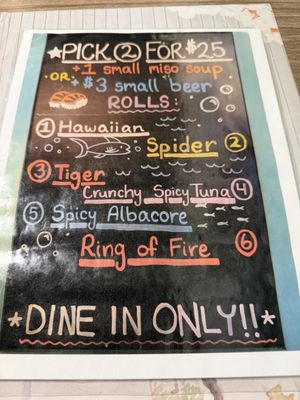 ★PICK ② FOR $25
+1 small miso soup
OR
+ $3 small beer
ROLLS:
① Hawaiian
Spider ②
③ Tiger
Crunchy Spicy Tuna ④
⑤ Spicy Albacore
Ring of Fire ⑥
*DINE IN ONLY!!*